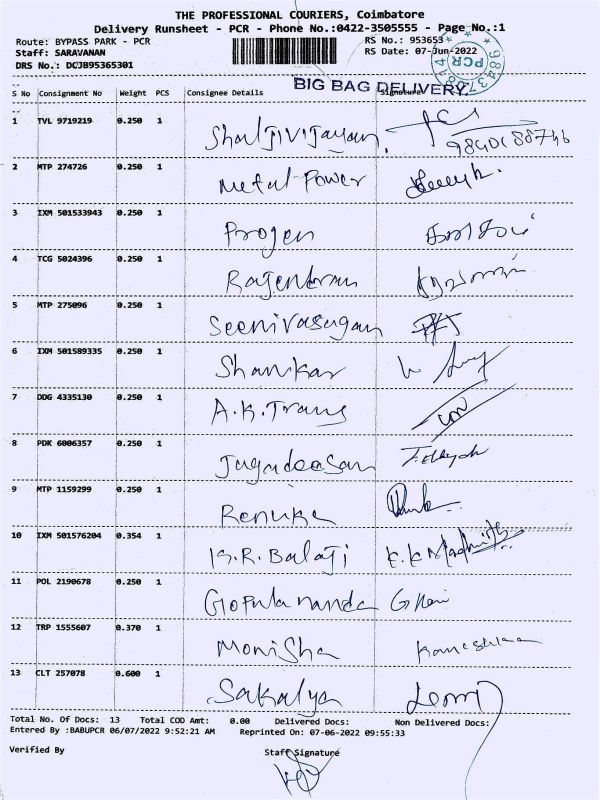 THE PROFESSIONAL COURIERS, Coimbatore
Delivery Runsheet - PCR - Phone No.:0422-3505555 - Page No.:1
Route: BYPASS PARK - PCR RS No.: 953653
Staff: SARAVANAN RS Date: 07-Jun-2022
DRS No.: DCJB95365301
PCR
BIG BAG DELIVERY
S No Consignment No Weight PCS Consignee Details Signature
1 TVL 9719219 0.250 1
2 MTP 274726 0.250 1 Metal Power
3 IXM 501533943 0.250 1 Progen
4 TCG 5024396 0.250 1 Rajendran
5 MTP 275096 0.250 1 Seenivasagan
6 IXM 501589335 0.250 1 Shankar
7 DDG 4335130 0.250 1 A.K.Trans
8 PDK 6006357 0.250 1 Jagadeesan
9 MTP 1159299 0.250 1 Renuka
10 IXM 501576204 0.354 1 K.R.Balaji
11 POL 2190678 0.250 1 Gopula nanda
12 TRP 1555607 0.370 1 Monisha
13 CLT 257078 0.600 1 Sakalya
Total No. Of Docs: 13 Total COD Amt: 0.00 Delivered Docs: Non Delivered Docs:
Entered By :BABUPCR 06/07/2022 9:52:21 AM Reprinted On: 07-06-2022 09:55:33
Verified By Staff Signature